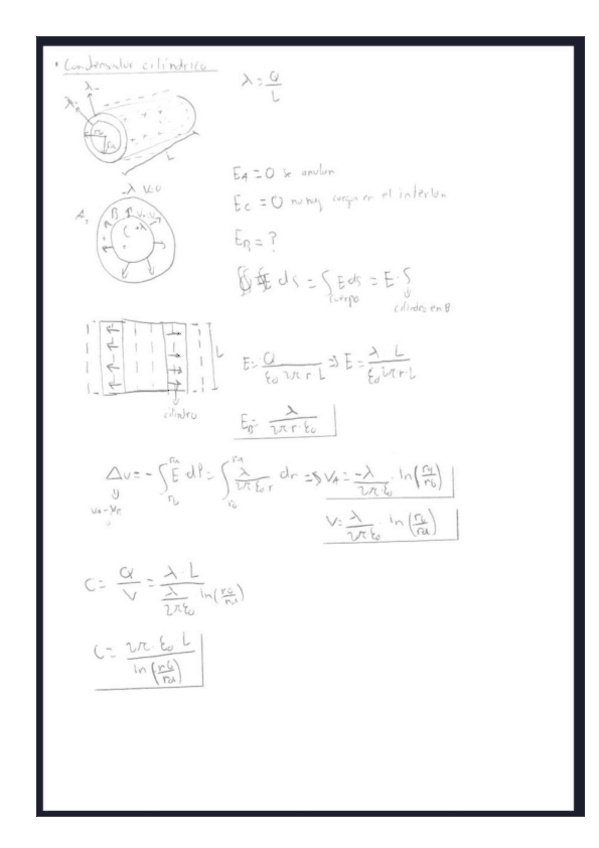 • Condensador cilíndrico
λ = Q/L
λ-
λ+
rb
ra
L
E_A = 0 se anulan
E_C = 0 no hay carga en el interior
-λ V=0
A,
B
C
+λ
E_B = ?
∮ E ds = ∫ E ds = E · S
cuerpo
cilindro en B
L
cilindro
E = Q / (ε₀ 2π r · L) ⇒ E = λ · L / (ε₀ 2π r · L)
E_B = λ / (2π · r · ε₀)
Δv = - ∫ E dl = ∫ λ / (2π ε₀ r) dr ⇒ V_A = -λ / (2π · ε₀) · ln(ra/rb)
V = λ / (2π ε₀) · ln(rb/ra)
C = Q/V = λ · L / (λ/(2π ε₀) ln(rb/ra))
C = 2π · ε₀ · L / ln(rb/ra)